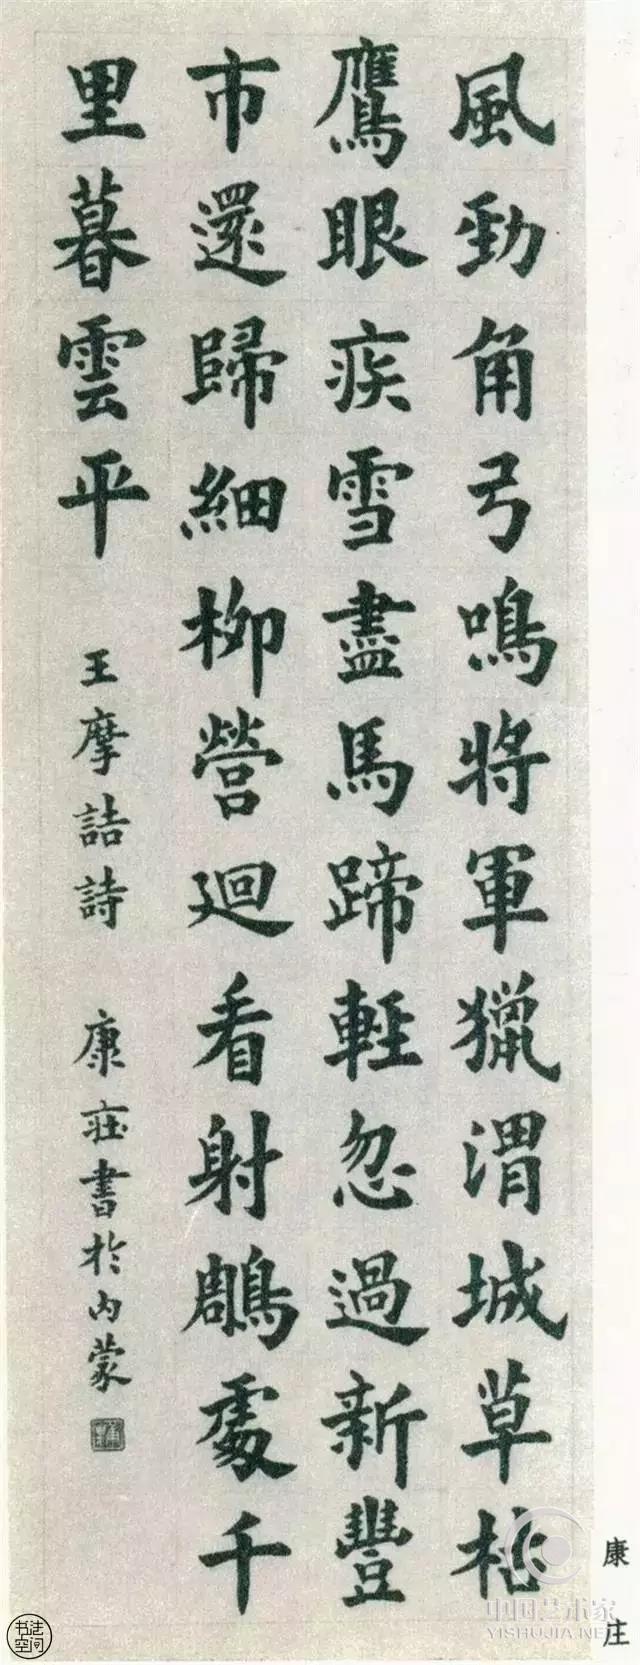 風勁角弓鳴將軍獵渭城草枯
鷹眼疾雪盡馬蹄輕忽過新豐
市還歸細柳營迴看射鵰處千
里暮雲平
王摩詰詩 康莊書於內蒙
康庄
书法
空间
中国艺术家
YISHUJIA.NET